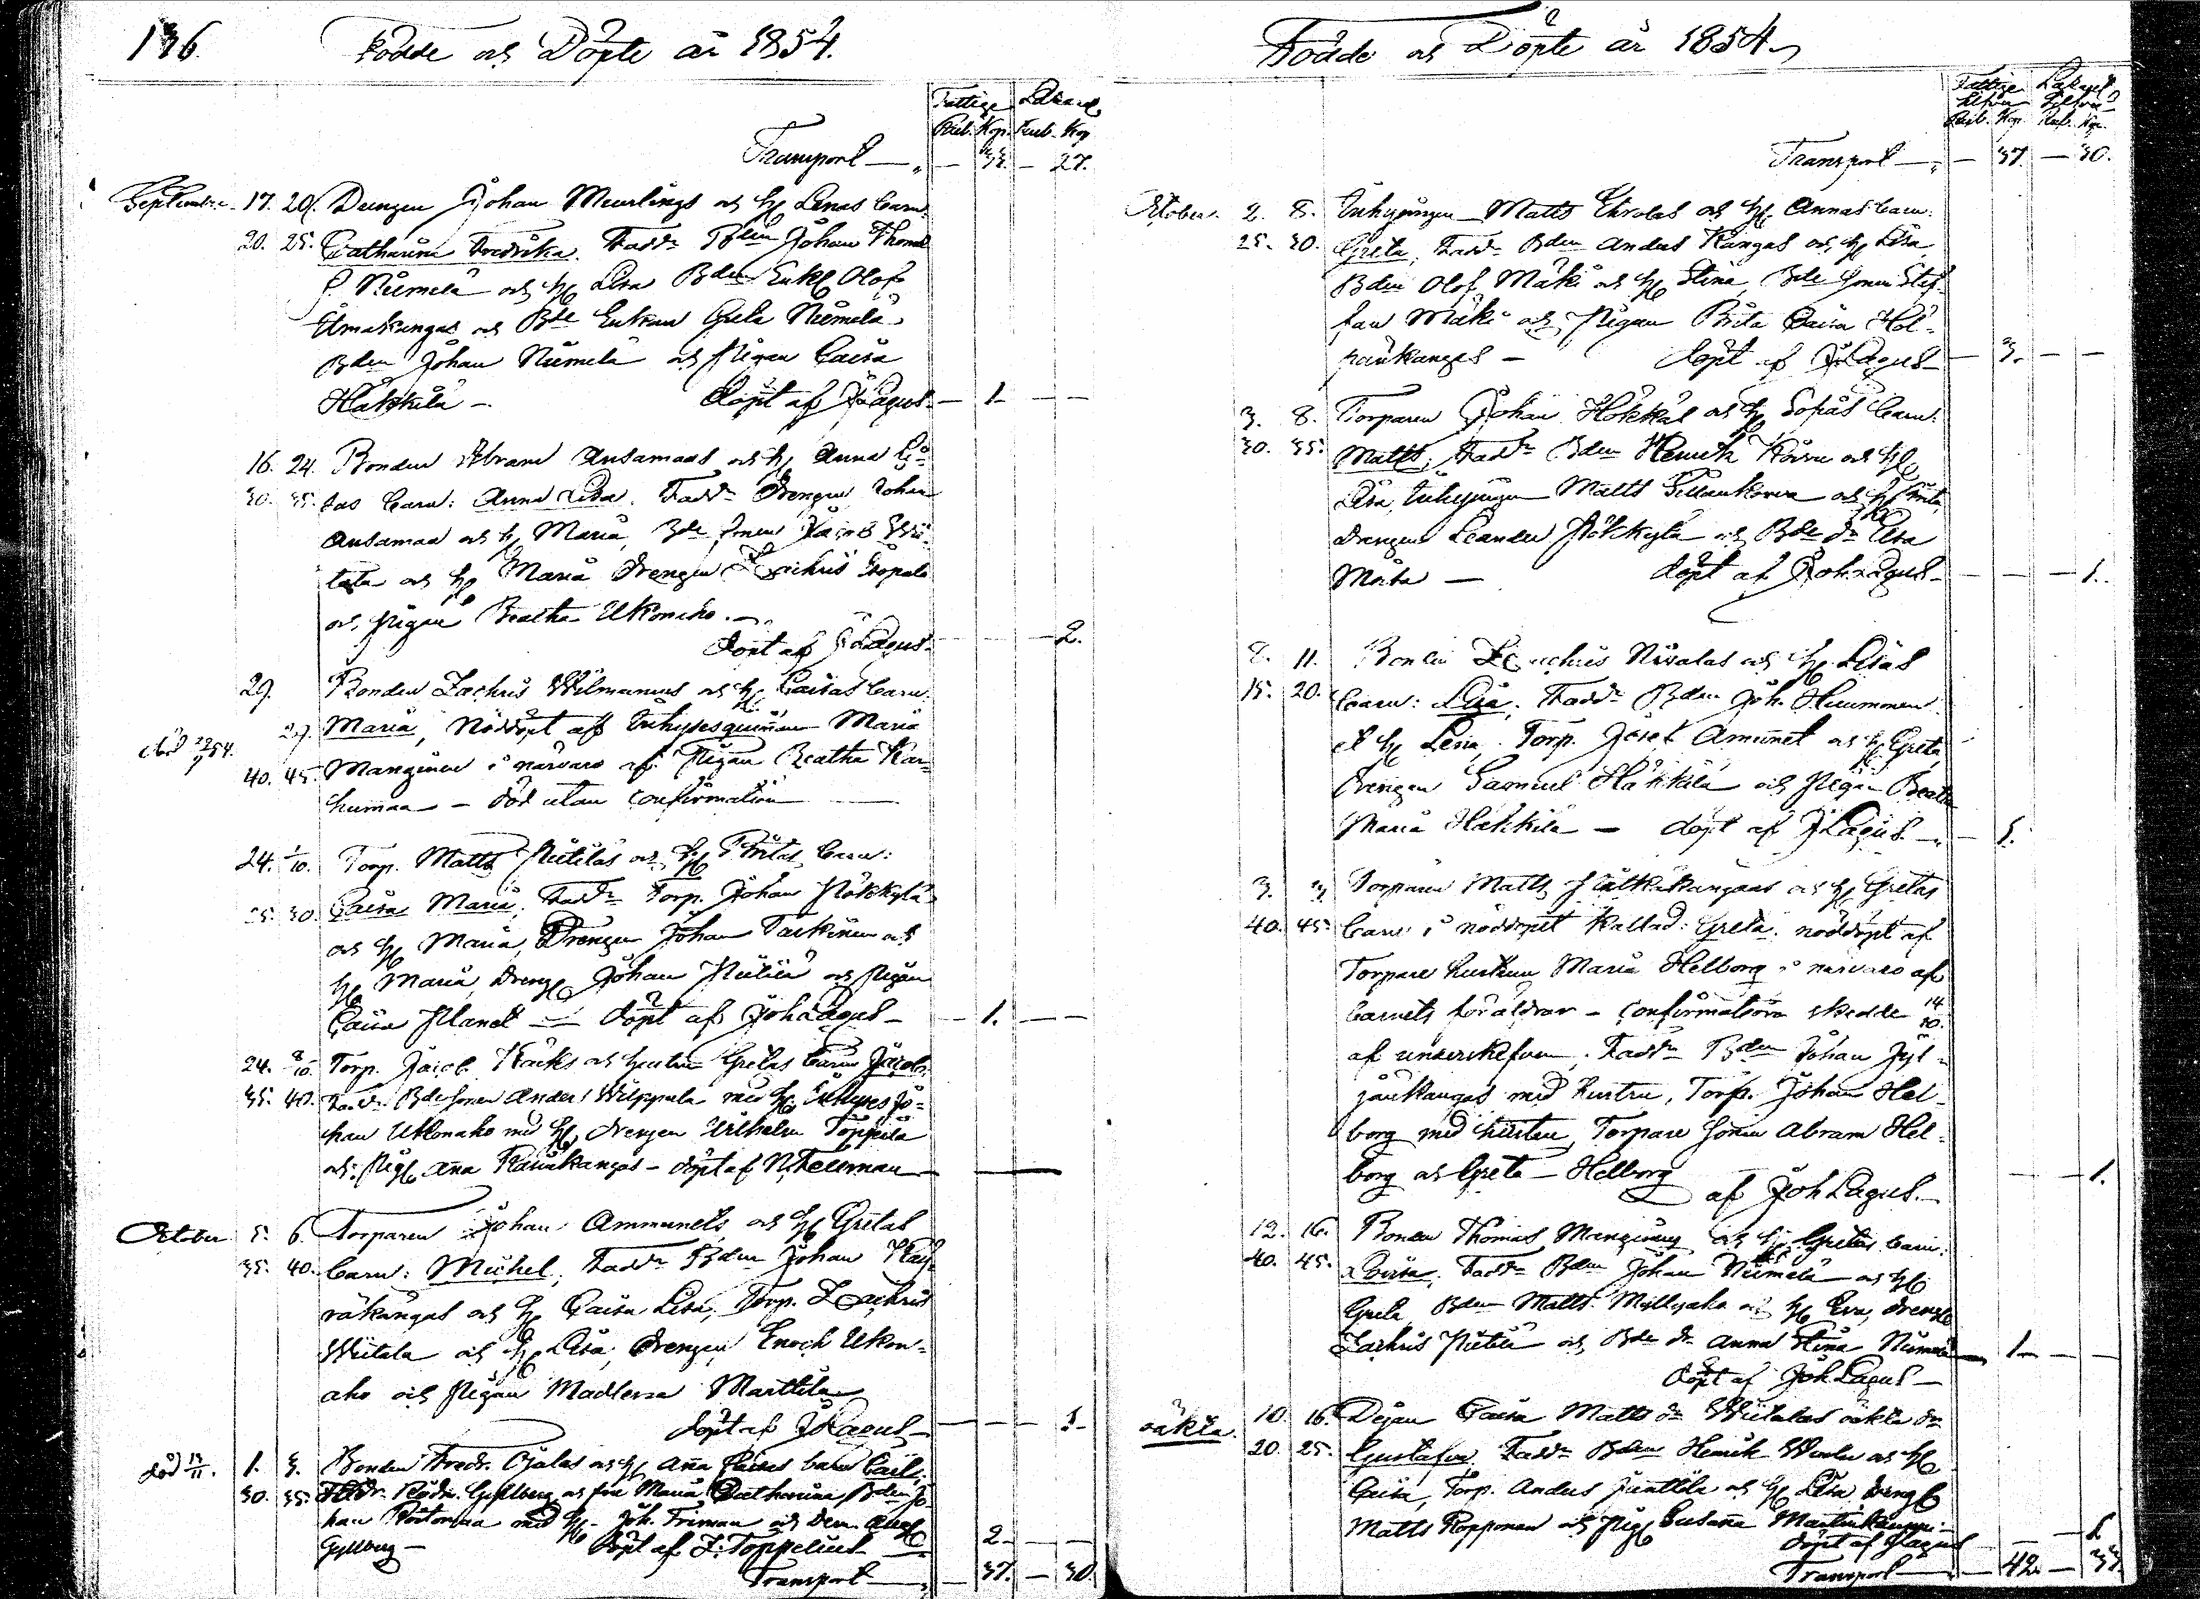 136.
Födde och Döpte år 1854.
Fattige Läkared.
Rub. Kop. Rub. Kop
Transport — 33. — 27.
Septembr. 17. 20. Drengen Johan Meurlings och H. Lenas barn:
20. 25. Catharina Fredrika. Fadd. Bden Johan Thomas
S. Niemelä och H. Lisa Bden Enkl. Olof
Elmakangas och Bde Enkan Greta Niemelä
Bden Johan Niemelä och Pigan Caisa
Häkkilä — döpt af J Lagus — 1 — —
16. 24. Bonden Abram Ansamaas och H. Anna
30. 35. sas barn: Anna Lisa. Fadd. Drengen Johan
Ansamaa och H. Maria, Bde sonen Jacob Wii-
tala och H. Maria Drengen Zachris
och Pigan Beatha Ukonaho —
döpt af J Lagus — 2.
29. Bonden Zachris Wilmanus och H. Caisas barn:
29. Maria, Nöddöpt af Inhysesqvinnan Maria
död 29/9 54.
40. 45. Manginen i närvaro af Pigan Beatha Kar-
humaa — död utan Confirmation
24. 1/10. Torp. Matts Pietiläs och H. Britas barn:
25. 30. Caisa Maria, Fadd. Torp. Johan Pökkylä
och H. Maria, Drengen Johan Taskinen och
H. Maria, Dreng. Johan Pietilä och Pigan
Caisa — döpt af Joh Lagus — 1. — —
24. 8/10. Torp. Jacob Kacks och hustru Gretas barn Jacob.
35. 40. Fadd. Bde sonen Anders Wilppala med H. Inhyses Jo-
han Ukonaho med H. drengen Wilhelm Toppila
och Pig. Anna Kaunkangas — döpt af N. Fellman —
October 5. 6. Torparen Johan Ammunets och H. Gretas
35. 40. barn: Michel, Fadd. Bden Johan Kay-
räkangas och H. Caisa Lisa, Torp. Zachris
Wiitala och H. Lisa, Drengen Enoch Ukon-
aho och Pigan Madlena Marttila
döpt af J Lagus — — 1
död 14/11. 1. 3. Bonden Fredr. Ojalas och H. Anna barn Carl.
30. 35. Gyllberg och fru Maria Catharina, Bden Jo-
han med H. Joh. Friman och Dem. Aug.
Gyllberg — döpt af Z. Toppelius — 2 — —
Transport — 37. — 30.
Födde och Döpte år 1854
Fattige Läkared
Silfver Silfver
Rub. Kop. Rub. Kop.
Transport — 37 — 30.
October. 2. 8. Inhysingen Matts Ehrolas och H. Annas barn:
25. 30. Greta, Fadd. Bden Anders Kangas och H. Lisa
Bden Olof Mäki och H. Stina, Bde sonen Stef-
fan Mäki och Pigan Brita Caisa Hol-
pankangas — döpt af J Lagus — 3. — —
3. 8. Torparen Johan Hökkäs och H. Sofias barn:
30. 35. Matts, Fadd. Bden Henrik Körve och H.
Lisa, Inhysingen Matts och H. Brita,
Drengen Leander Pökkylä och Bde dr. Lisa
döpt af Joh Lagus — — 1.
8. 11. Bonden Zachris Nivalas och H. Lisas
15. 20. barn: Lisa, Fadd. Bden Joh. Huumonen
och H. Lena, Torp. Josef Ammunet och H. Greta
Drengen Samuel Häkkilä och Pigan Beatha
Maria Häkkilä — döpt af J Lagus — 1.
3. 3. Torparen Matts Jylkäkangas och H. Gretas
40. 45. barn i nöddopet kallad: Greta. nöddöpt af
Torpare hustrun Maria Helborg i närvaro af
barnets föräldrar — Confirmation skedde 14/10.
af underskrefven. Fadd. Bden Johan Jyl-
jänkangas med hustru, Torp. Johan Hel-
borg med hustru, Torpare sonen Abram Hel-
borg och Greta — Helborg — — 1.
af Joh Lagus. —
12. 16. Bonden Thomas Mangineng och H. Gretas barn:
40. 45. Lovisa, Fadd. Bden Johan Niemelä och H.
Greta, Bden Matts Myllyaho och H. Eva, Dreng
Zachris Pietilä och Bde dr. Anna Stina Niemelä — 1 — —
döpt af Joh Lagus —
oäkta. 10. 16. Pigan Caisa Matts dr. Wiitalas oäkta dr.
20. 25. Gustafva, Fadd. Bden Henrik och H.
Caisa, Torp. Anders Junttila och H. Lisa, Dreng
Matts Ropponen och Pig. Susanna Martinkauppi —
döpt af Lagus — 1.
Transport — 42 — 33.